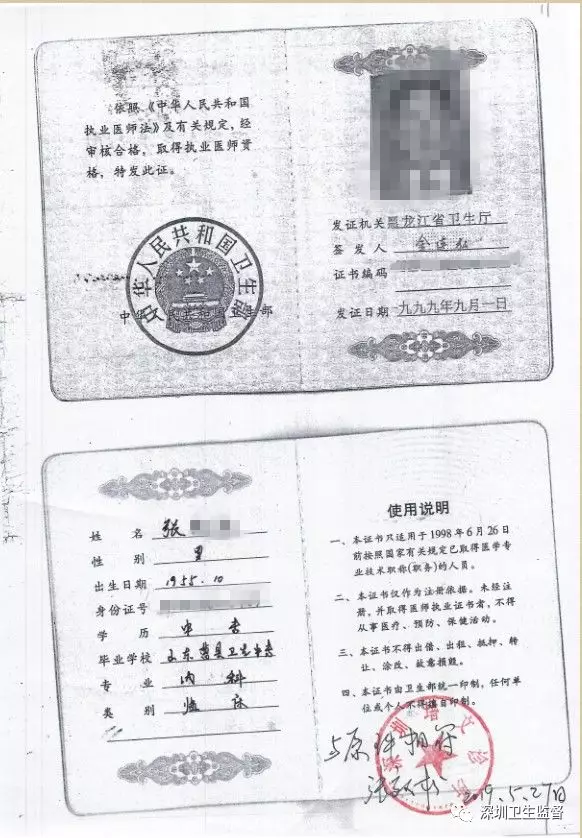 依照《中华人民共和国
执业医师法》及有关规定，经
审核合格，取得执业医师资
格，特发此证。
中华人民共和国卫生部
发证机关 黑龙江省卫生厅
签发人
证书编码
发证日期 九九九年九月一日
姓 名 张
性 别 男
出生日期 1955.10
身份证号
学 历 中专
毕业学校
专 业 内科
类 别 临床
使用说明
一、本证书只适用于1998年6月26日
前按照国家有关规定已取得医学专
业技术职称(职务)的人员。
二、本证书仅作为注册依据。未经注
册，并取得医师执业证书者，不得
从事医疗、预防、保健活动。
三、本证书不得出借、出租、抵押、转
让、涂改、故意损毁。
四、本证书由卫生部统一印制，任何单
位或个人不得擅自印制。
与原件相符
2019.5.27日
深圳卫生监督